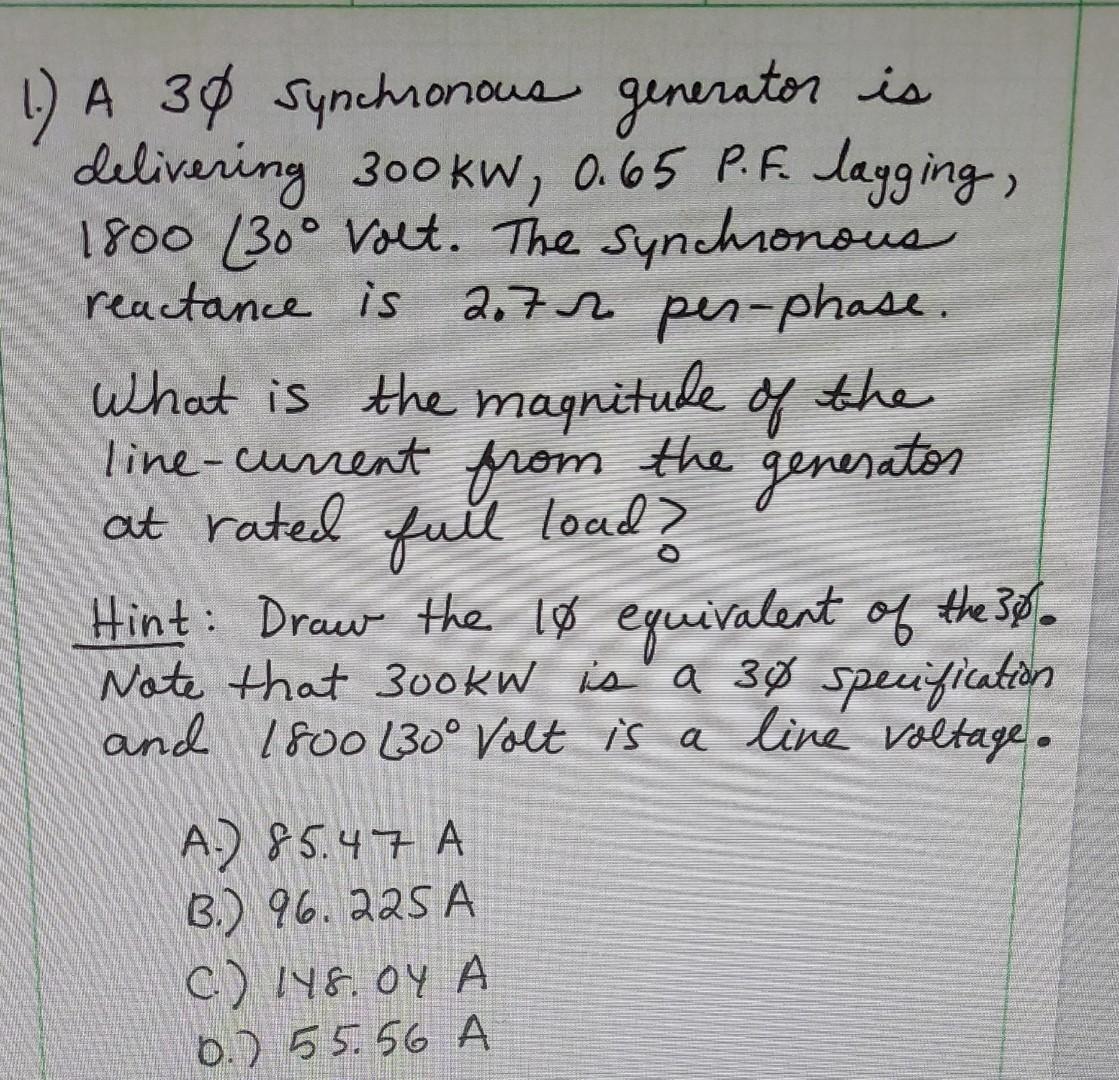 1.) A 3ϕ synchronous generator is
delivering 300KW, 0.65 P.F. lagging,
1800 ∠30° Volt. The synchronous
reactance is 2.7Ω per-phase.
What is the magnitude of the
line-current from the generator
at rated full load?
Hint: Draw the 1ϕ equivalent of the 3ϕ.
Note that 300KW is a 3ϕ specification
and 1800 ∠30° Volt is a line voltage.
A.) 85.47 A
B.) 96.225 A
C.) 148.04 A
D.) 55.56 A